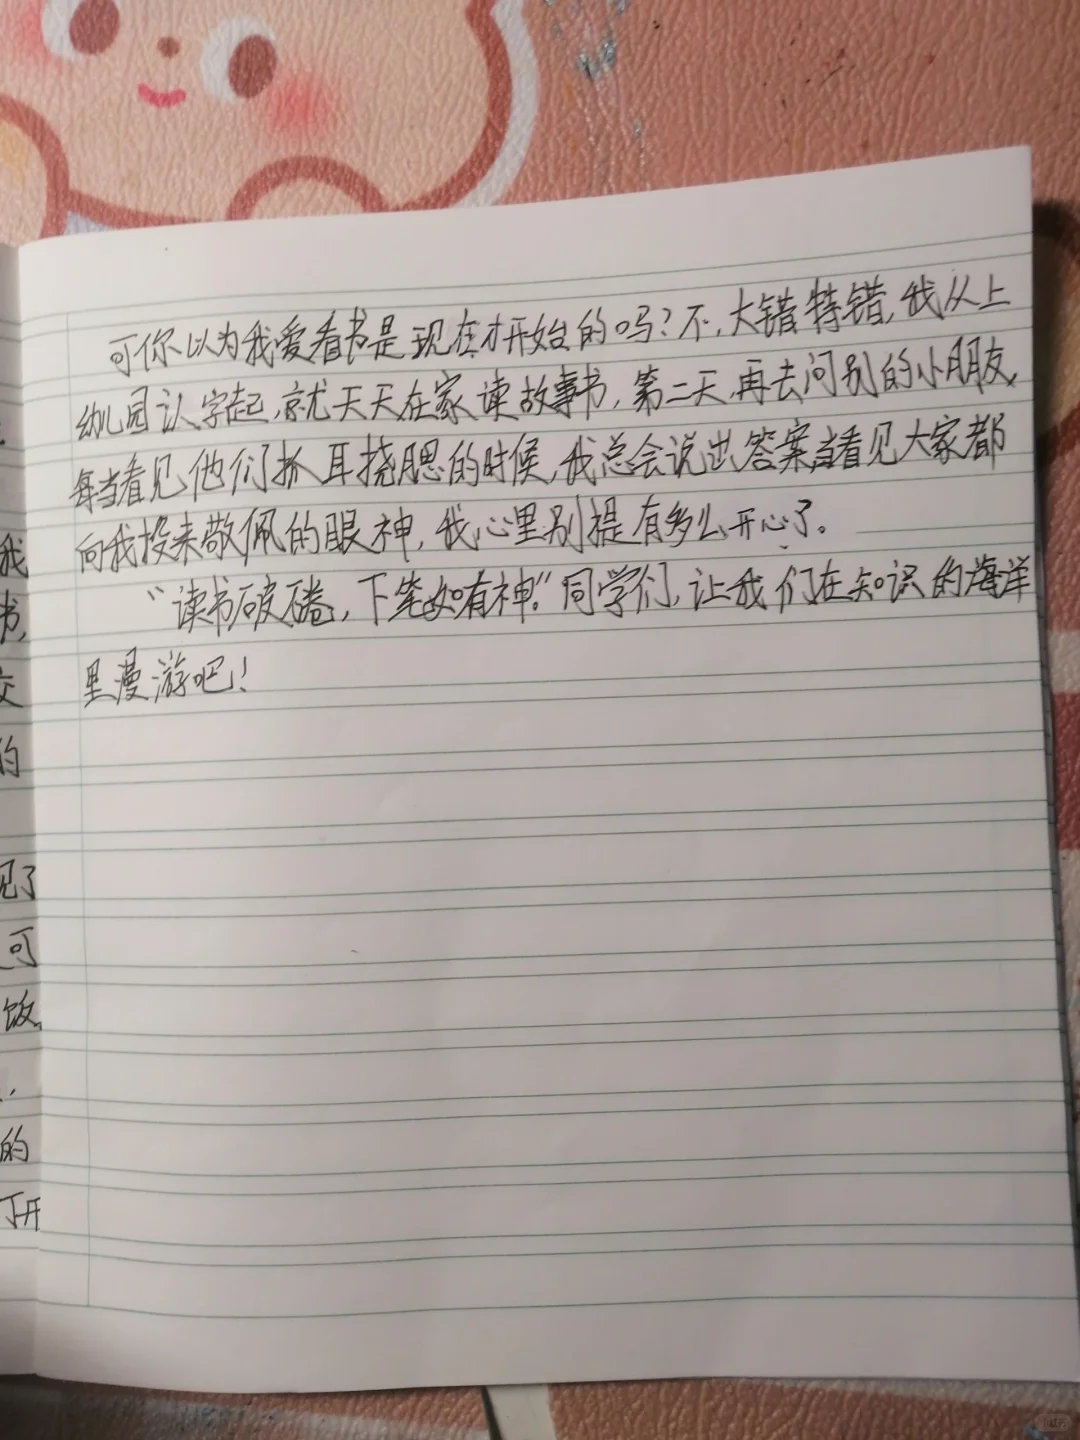 可你以为我爱看书是现在才开始的吗？不，大错特错，我从上
幼儿园认字起，就天天在家读故事书，第二天，再去问别的小朋友，
每当看见他们抓耳挠腮的时候，我总会说出答案当看见大家都
向我投来敬佩的眼神，我心里别提有多么开心了。
“读书破卷，下笔如有神。”同学们，让我们在知识的海洋
里漫游吧！
我
书，
交
的
见了
可
饭。
的
开